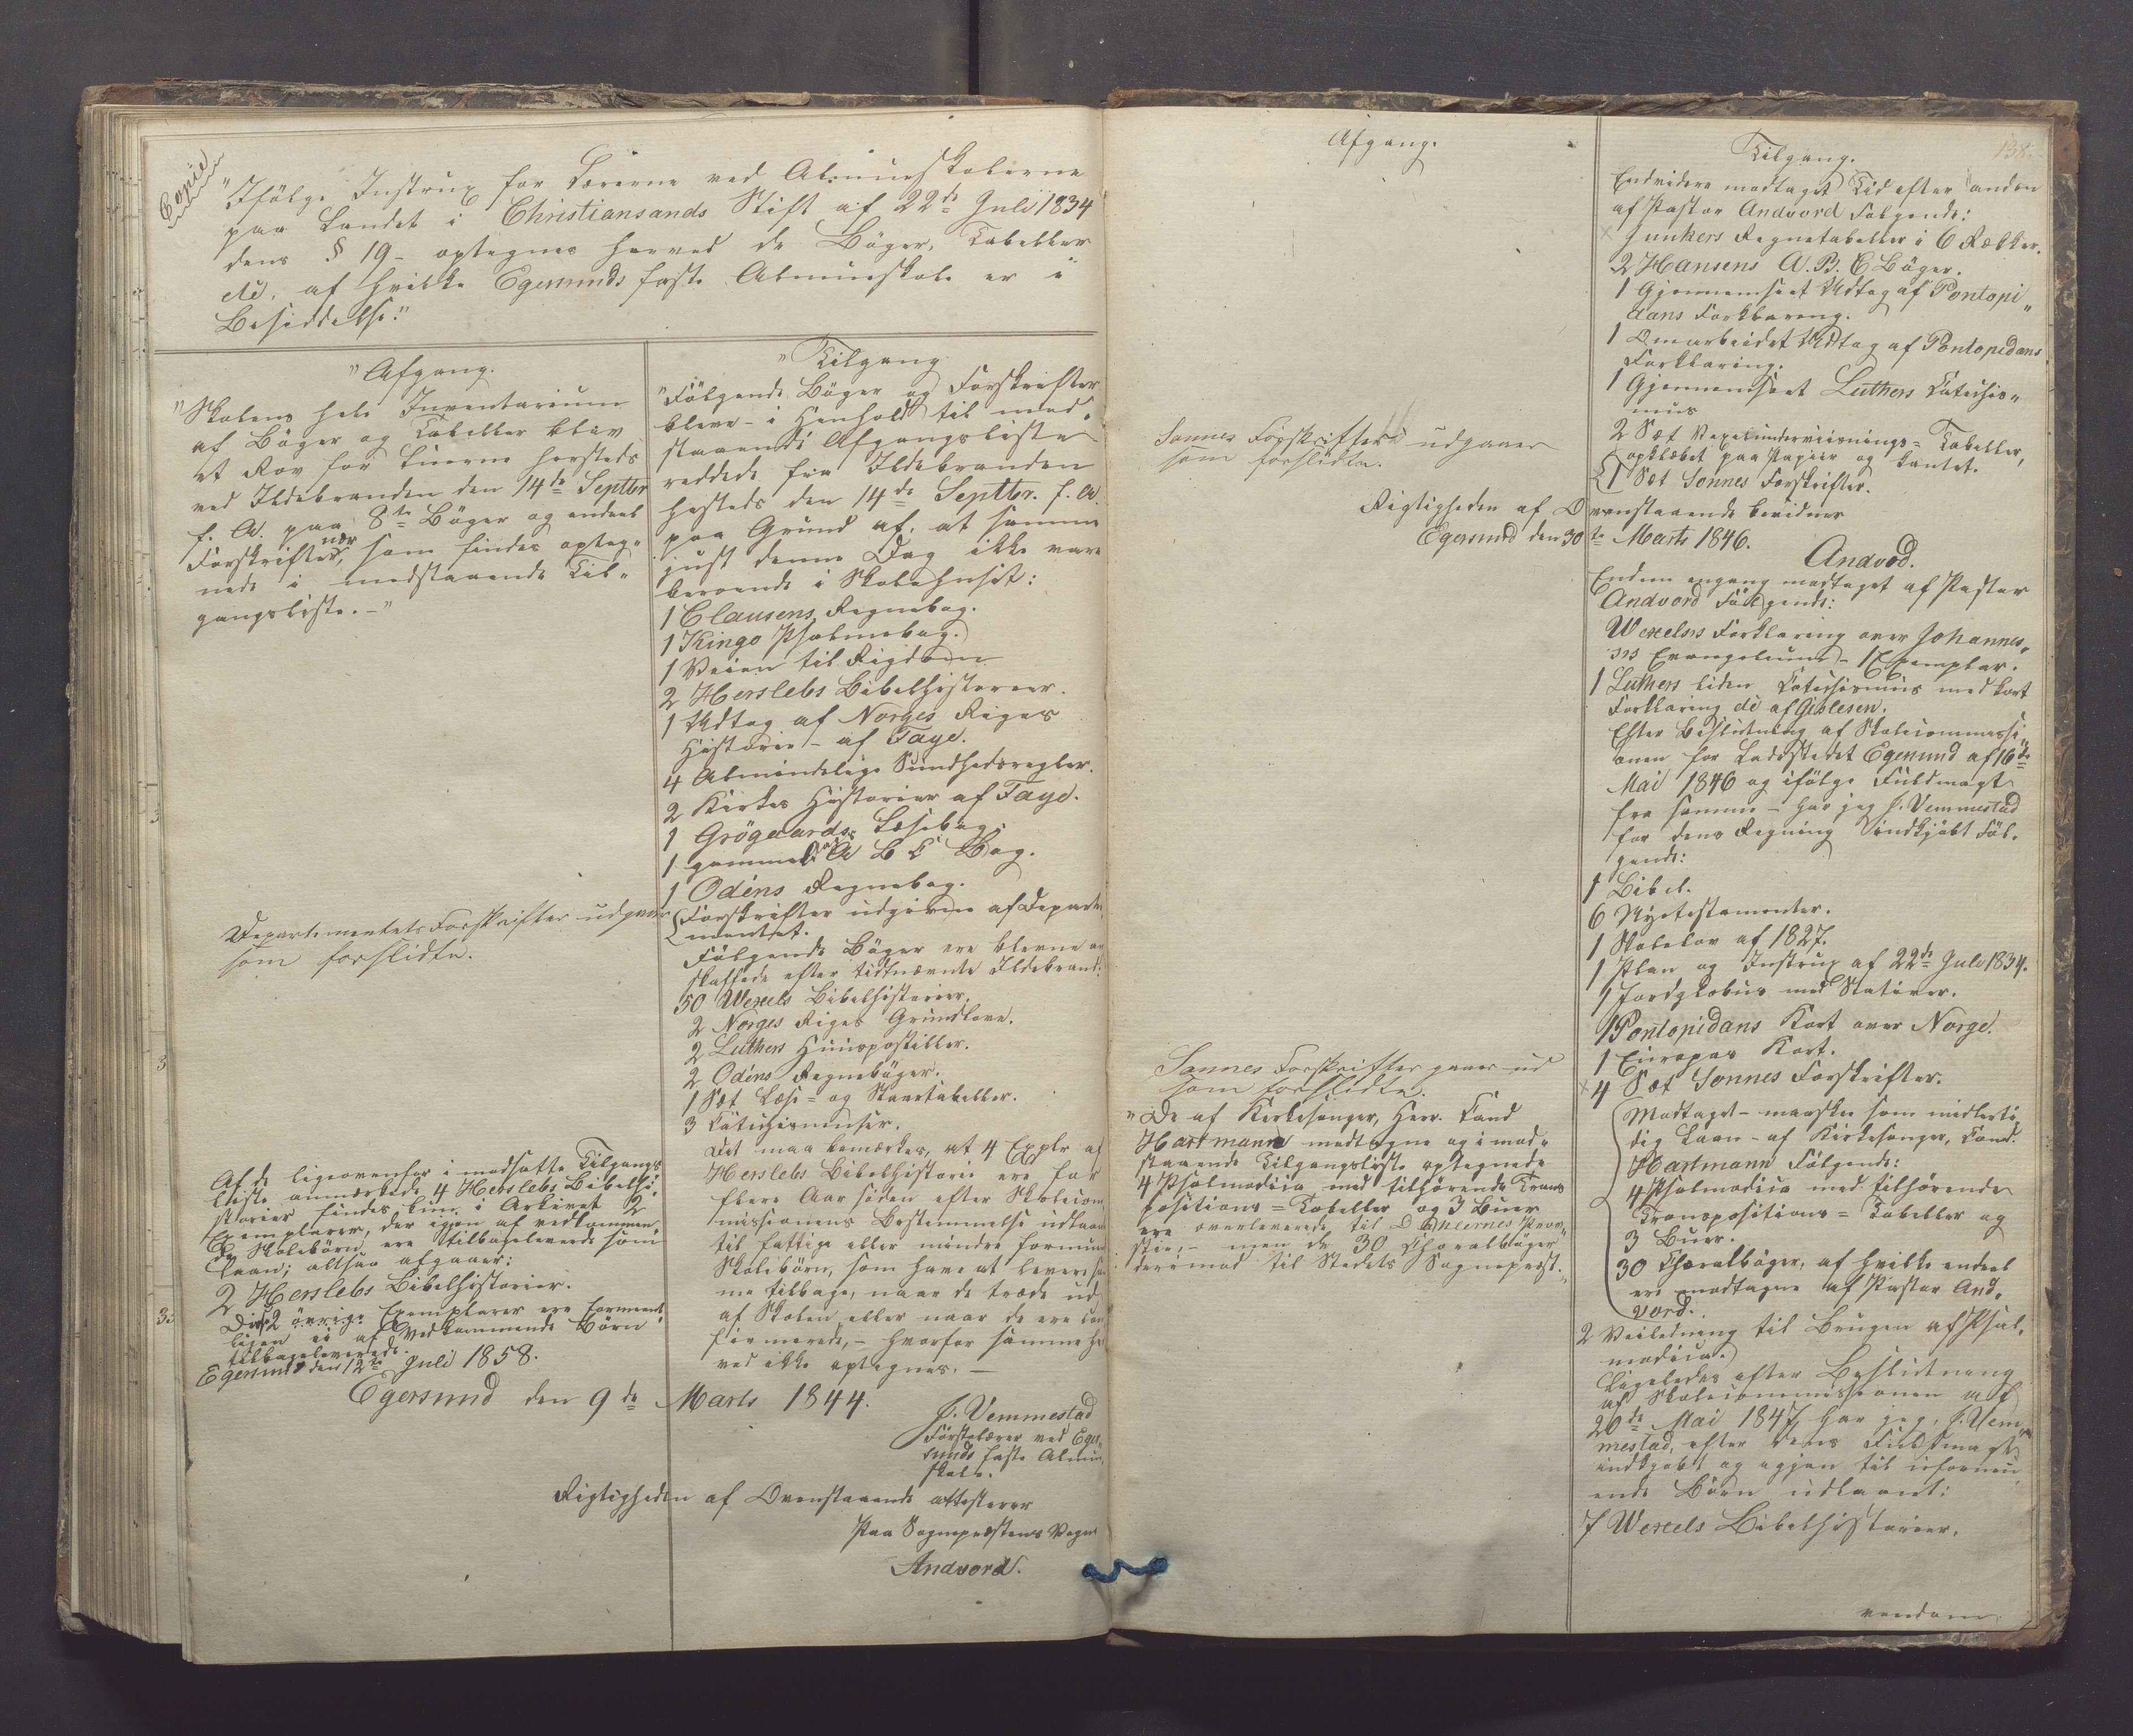 Copie
"Ifölge Instrux for Lærerne ved Almueskolerne
paa Landet i Christiansands Stift af 22de Juli 1834
dens § 19 - optegnes herved de Bøger, Tabeller
etc. af hvilke Egersunds faste Almueskole er i
Besiddelse."
"Afgang.
"Skolens hele Inventarium
af Bøger og Tabeller blev
et Rov for Luerne hersteds
ved Ildebranden den 14de Septbr
f. A. paa 8te Bøger og endeel
Forskrifter nær, som findes opteg-
nede i modstaaende Til-
gangsliste. -"
Departementets Forskrifter udgaaer
som forslidte.
Af de ligeovenfor i modsatte Tilgangs
liste anmærkede 4 Herslebs Bibelhi-
storier findes kun i Arkivet 2
Exemplarer, der igjen af vedkommen-
de Skolebørn ere tilbageleverede som
Laan; altsaa afgaaer:
2 Herslebs Bibelhistorier.
Disse 2 øvrige Exemplarer ere formeent-
ligen ei af Vedkommende Børn
tilbageleverede.
Egersund den 12te Juli 1858.
"Tilgang
"Følgende Bøger og Forskrifter
bleve - i Henhold til mod-
staaende Afgangsliste
reddede fra Ildebranden
hersteds den 14de Septbr. f. A.
paa Grund af, at samme
just denne Dag ikke vare
beroende i Skolehuset:
1 Clausens Regnebog.
1 Kingo Psalmebog.
1 Veien til Rigdom
2 Herslebs Bibelhistorier.
1 Udtog af Norges Riges
Historie - af Faye.
4 Almindelige Sundhedsregler.
2 Kirkes Historier af Faye.
1 Grögaards Læsebog.
1 gammel A B C Bog.
1 Odins Regnebog.
Forskrifter udgivne af Departe-
mentet.
Følgende Bøger ere blevne an-
skaffede efter tidtnævnte Ildebrand:
50 Wexels Bibelhistorier.
2 Norges Riges Grundlove.
2 Luthers Huuspostiller.
2 Odins Regnebøger.
1 Sæt Læse- og Stavetabeller.
3 Catechismuser.
Det maa bemærkes, at 4 Explr af
Herslebs Bibelhistorie ere for
flere Aar siden efter Skolecom-
missionens Bestemmelse udlaant
til fattige eller mindre formuende
Skolebørn, som have at levere sam-
me tilbage, naar de træde ud
af Skolen, eller naar de ere con-
firmerede, - hvorfor samme her-
ved ikke optegnes. -
Egersund den 9de Marts 1844.
J. Vemmestad
Førstelærer ved Eger-
sunds faste Almue-
skole.
Rigtigheden af Ovenstaaende attesterer
Paa Sognepræstens Vegne
Andvord.
Afgang.
Sonnes Forskrifter udgaaer
som forslidte.
Sonnes Forskrifter gaaer ud
som forslidte.
"De af Kirkesanger, Herr. Cand
Hartmann modtagne og i mod-
staaende Tilgangsliste optegnede
4 Psalmodica med tilhørende Trans
positions-Tabeller og 3 Buer
ere overleverede til Dalernes Prov-
stie, - men de 30 Choralbøger
derimod til Stedets Sognepræst.
138.
Tilgang.
Endvidere modtaget Tid efter anden
af Pastor Andvord Følgende:
Junkers Regnetabeller i 6 Rækker.
2 Hansens A. B. C Bøger.
1 Gjennemseet Udtog af Pontopi-
dans Forklaring.
1 Omarbeidet Udtog af Pontopidans
Forklaring.
1 Gjennemseet Luthers Catechis-
mus
2 Sæt Vexelunderviisnings-Tabeller,
opklæbet paa Papier og kantet.
1 Sæt Sonnes Forskrifter.
Rigtigheden af Ovenstaaende bevidner
Egersund den 30te Marts 1846.
Andvord.
Endnu engang modtaget af Pastor
Andvord Følgende:
Wexelsis Forklaring over Johannes-
sis Evangelium - 1 Exemplar.
1 Luthers liden Catechismus med kort
Forklaring etc af Gislesen.
Efter Beslutning af Skolecommissi-
onen for Ladestedet Egersund af 16de
Mai 1846 og ifølge Fuldmagt
fra samme - har jeg J. Vemmestad
for dens Regning indkjøbt Føl-
gende:
1 Bibel.
6 Nyetestamenter.
1 Skolelov af 1827.
1 Plan og Instrux af 22de Juli 1834.
1 Jordglobus med Stativer.
1 Pontopidans Kort over Norge.
1 Europas Kort.
4 Sæt Sonnes Forskrifter.
Modtaget - maaskee som midlerti-
dig Laan - af Kirkesanger, Cand.
Hartmann Følgende:
4 Psalmodica med tilhørende
Transpositions-Tabeller og
3 Buer.
30 Choralbøger, af hvilke endeel
ere modtagne af Pastor And-
vord.
2 Veiledning til Brugen af Psal-
modica.
Ligeledes efter Beslutning
af Skolecommissionen af
20de Mai 1847, har jeg, J. Vem-
mestad, efter dens Fuldmagt
indkjøbt og igjen til uformu-
ende Børn udlaant:
7 Wexels Bibelhistorier.